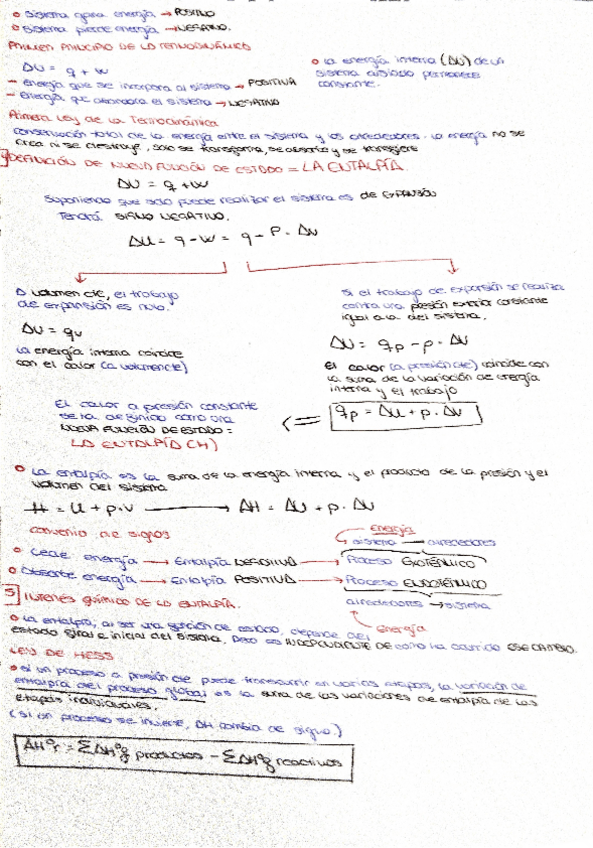 o Sistema gana energía → POSITIVO
o Sistema pierde energía → NEGATIVO.
PRIMER PRINCIPIO DE LA TERMODINÁMICA
ΔU = q + w
– energía que se incorpora al sistema → POSITIVA
– Energía que abandona el sistema → NEGATIVO
o La energía interna (ΔU) de un
sistema aislado permanece
constante.
Primera Ley de la Termodinámica
conservación total de la energía entre el sistema y los alrededores. La energía no se
crea ni se destruye, solo se transforma, se absorbe y se transfiere
4 DEFINICIÓN DE NUEVA FUNCIÓN DE ESTADO = LA ENTALPÍA.
ΔU = q + w
Suponiendo que solo puede realizar el sistema es de EXPANSIÓN
Tendrá SIGNO NEGATIVO.
ΔU = q - w = q - P · ΔV
A volumen cte, el trabajo
de expansión es nulo.
ΔU = qv
La energía interna coincide
con el calor (a volumen cte)
Si el trabajo de expansión se realiza
contra una presión exterior constante
igual a la del sistema.
ΔU = qp - p · ΔV
El calor (a presión cte) coincide con
la suma de la variación de energía
interna y el trabajo
qp = ΔU + p · ΔV
⇐
EL calor a presión constante
se ha definido como una
NUEVA FUNCIÓN DE ESTADO:
LA ENTALPÍA (H)
o La entalpía es la suma de la energía interna y el producto de la presión y el
volumen del sistema
H = U + p · v → ΔH = ΔU + p · ΔV
convenio de signos
Energía
sistema → alrededores
o Cede energía → Entalpía NEGATIVA → Proceso EXOTÉRMICO
o Absorbe energía → Entalpía POSITIVA → Proceso ENDOTÉRMICO
alrededores → sistema
Energía
5 INTERÉS QUÍMICO DE LA ENTALPÍA.
o La entalpía, al ser una función de estado, depende del
estado final e inicial del sistema, pero es INDEPENDIENTE DE como ha ocurrido ESE CAMBIO.
LEY DE HESS
o si un proceso a presión cte puede transcurrir en varias etapas, la variación de
entalpía del proceso global es la suma de las variaciones de entalpía de las
etapas individuales.
(si un proceso se invierte, ΔH cambia de signo.)
ΔHºr = ΣΔHºf productos - ΣΔHºf reactivos